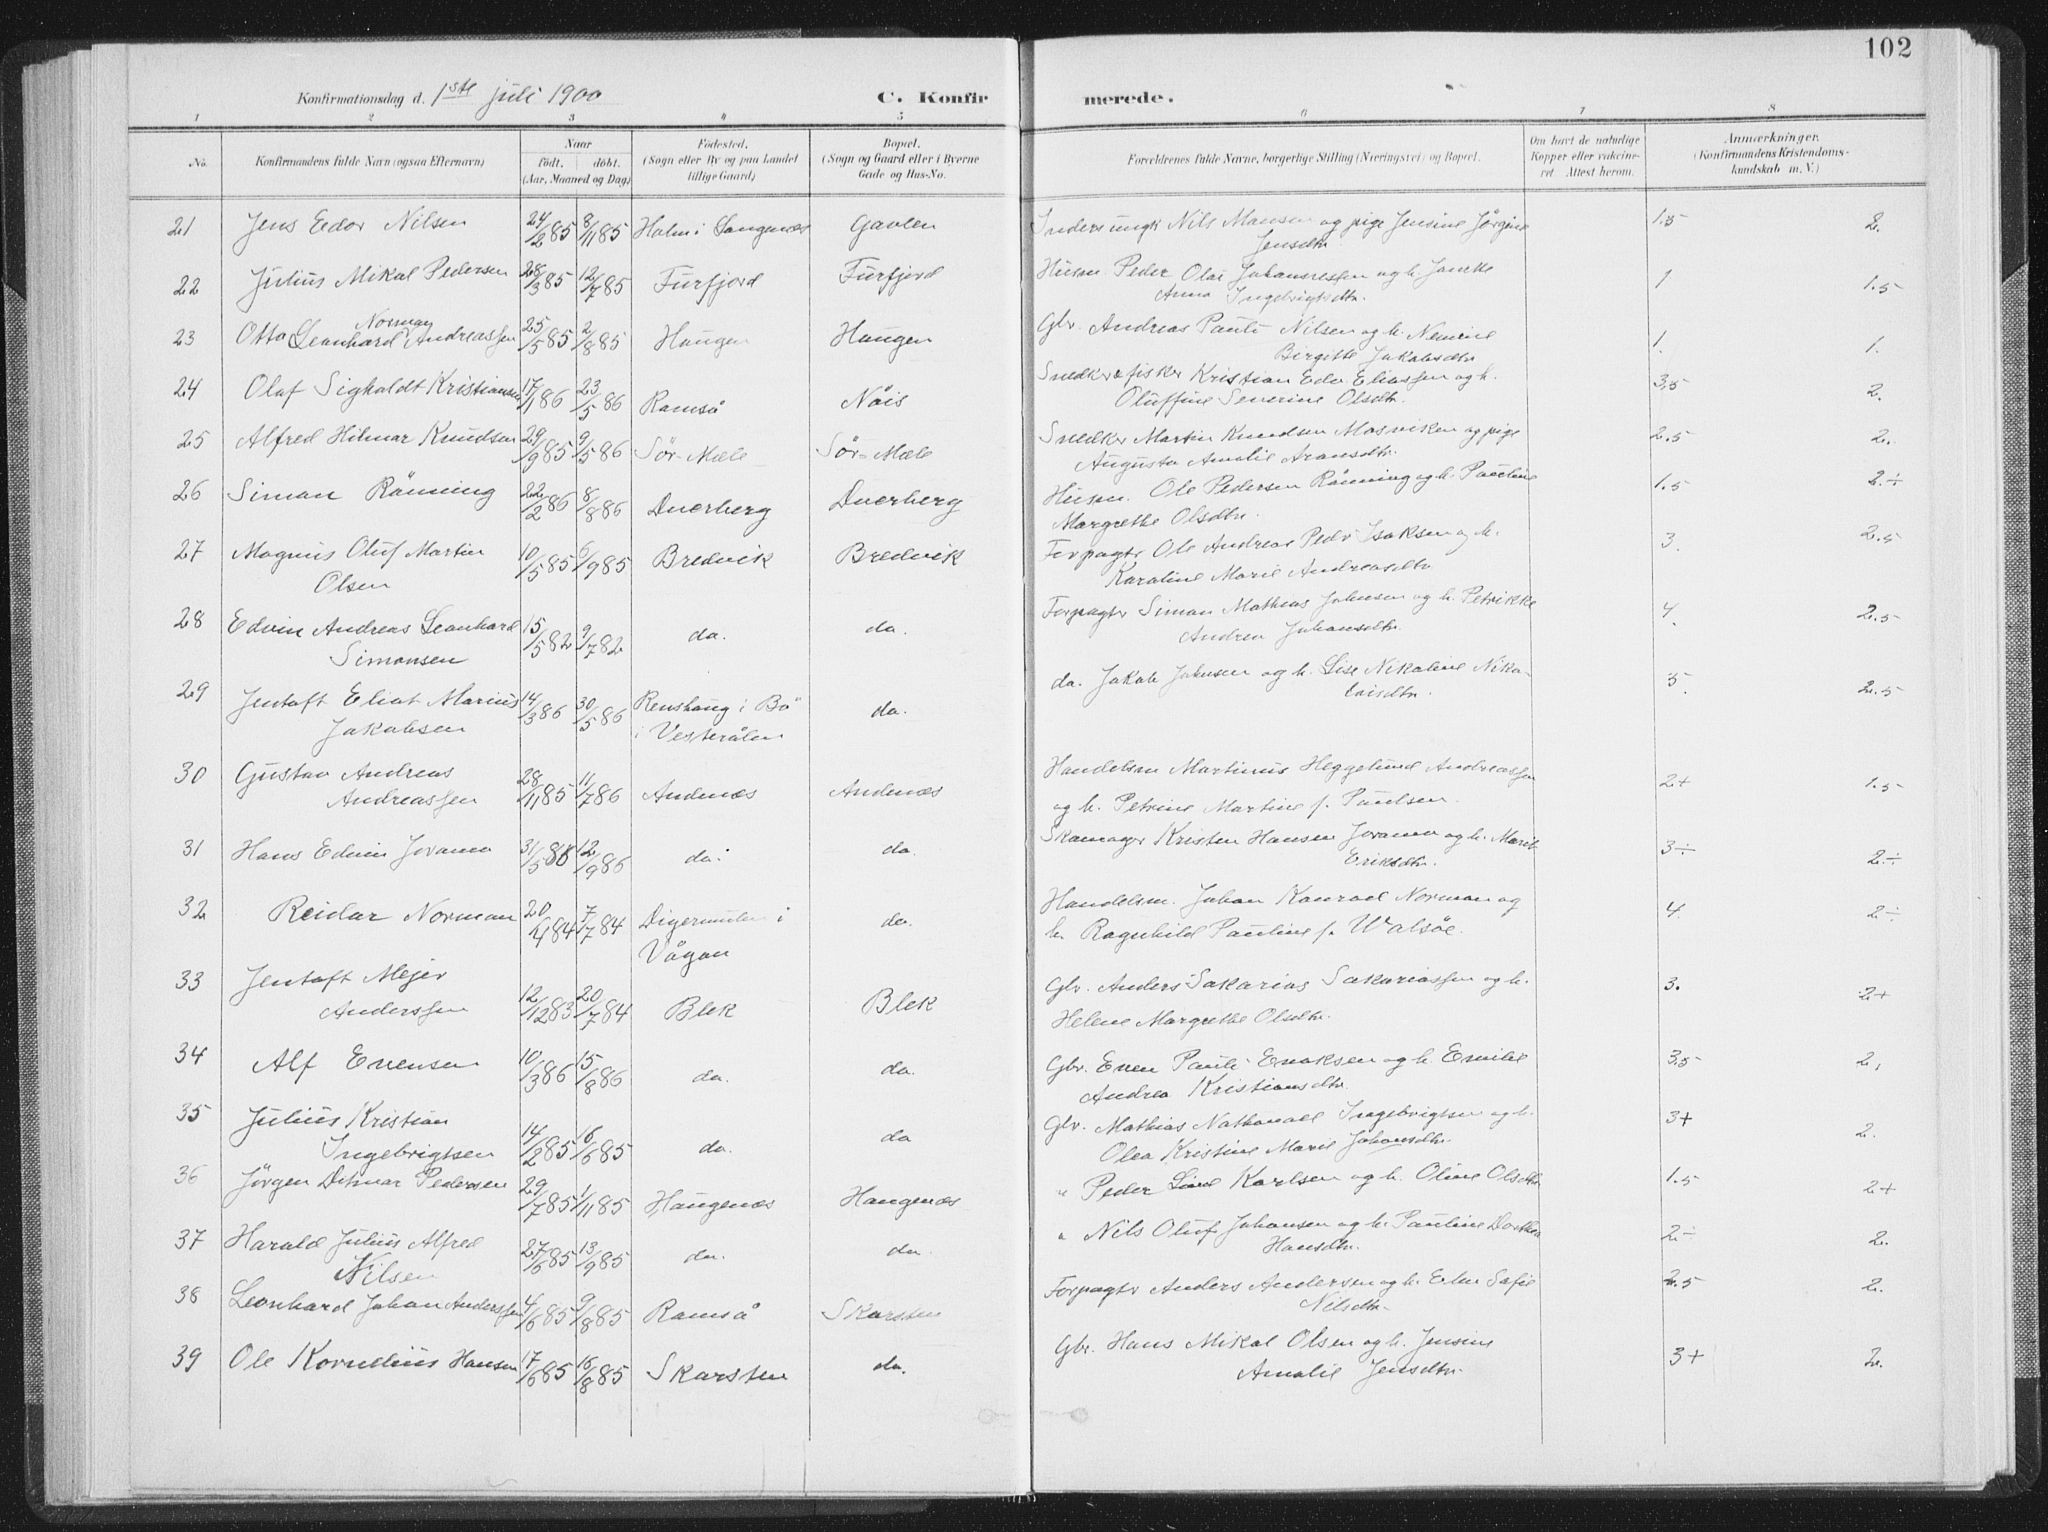 102
Konfirmationsdag d. 1ste juli 1900 C. Konfirmerede.
1 2 3 4 5 6 7 8
No. Konfirmandens fulde Navn (ogsaa Efternavn) Naar født. døbt. (Aar, Maaned og Dag) Fødested. (Sogn eller By og paa Landet tillige Gaard) Bopæl. (Sogn og Gaard eller i Byerne Gade og Hus-No. Forældrenes fulde Navne, borgerlige Stilling (Næringsvei) og Bopæl. Om havt de naturlige Kopper eller vakcineret. Attest herom. Anmærkninger. (Konfirmandens Kristendomskundskab m. V.)
21 Jens Edor Nilsen 24/2 85 8/11 85 Holm i Langenæs Gavlen Inderst ungk Nils Mansen og pige Jensine Jørgine 1.5 2.
Jensdtr.
22 Julius Mikal Pedersen 28/3 85 12/7 85 Fiurfjord Fiurfjord Husm. Peder Olai Johannessen og h. 1 1.5
Anna Ingebrigtsdtr.
23 Otto Leonhard Norman Andreassen 25/5 85 2/8 85 Haugen Haugen Gbr. Andreas Pauli Nilsen og h. 1. 1.
Birgitte Jakobsdtr
24 Olaf Sigvaldt Kristiansen 17/1 86 23/5 86 Ramså Nöis Snedker & fisker Kristian Edv. Eliassen og h. 3.5 2.
Oluffine Severine Olsdtr.
25 Alfred Hilmar Knudsen 29/9 85 9/5 86 Sör-Mæle Sör-Mæle Snedker Martin Knudsen Masviken og pige 2.5 2.
Augusta Amalie Aronsdtr.
26 Simon Rönning 22/2 86 8/8 86 Dverberg Dverberg Husm. Ole Pedersen Rönning og h. Pauline 1.5 2.÷
Margrethe Olsdtr.
27 Magnus Oluf Martin 10/5 85 6/9 85 Bredvik Bredvik Forpagter Ole Andreas Pedr Isaksen og h. 3. 2.5
Olsen Karoline Marie Andreasdtr.
28 Edvin Andreas Leonhard 15/5 82 9/7 82 do. do. Forpagter Simon Mathias Johnsen og h. Petrikke 4. 2.5
Simonsen Andrea Johansdtr.
29 Jentoft Eliot Marius 14/3 86 30/5 86 Renshaug i Bö do. do. Jakob Johnsen og h. Lise Nikoline Niko- 3. 2.5
Jakobsen i Vesterålen laisdtr.
30 Gustav Andreas 28/11 85 11/7 86 Andenæs Andenæs Handelsm Martinus Heggelund Andreassen 2+ 1.5
Andreassen og h. Petrine Martine f. Paulsen.
31 Hans Edvin Joramo 31/5 86 12/9 86 do. do. Skomager Kristen Hansen Joramo og h. Marit 3÷ 2.÷
Eriksdtr.
32 Reidar Norman 20/4 84 7/7 84 Digermulen i do. Handelsm. Johan Konrad Norman og 4. 2÷
Vågan h. Ragnhild Pauline f. Walsöe.
33 Jentoft Mejer 12/12 83 20/7 84 Blek Blek Gbr. Anders Sakarias Sakariassen og h. 3. 2+
Anderssen Helene Margrethe Olsdtr.
34 Alf Evensen 10/3 86 15/8 86 do. do. Gbr. Even Pauli Enoksen og h. Emilie 3.5 2.
Andrea Kristiansdtr.
35 Julius Kristian 14/2 85 16/6 85 do. do Gbr. Mathias Nathanael Ingebrigtsen og h. 3+ 2.
Ingebrigtsen Olea Kristine Marie Johansdtr.
36 Jørgen Ditmar Pedersen 29/7 85 1/11 85 Haugenæs Haugenæs " Peder Karlsen og h. Oline Olsdtr 1.5 2+
37 Harald Julius Alfred 27/6 85 13/9 85 do. do. " Nils Oluf Johansen og h. Pauline Dorthea 2÷ 2.
Nilsen Hansdtr.
38 Leonhard Johan Anderssen 4/6 85 9/8 85 Ramså Skarsten Forpagter Anders Andersen og h. Elen Sofie 2.5 2.
Nilsdtr.
39 Ole Kornelius Hansen 17/6 85 16/8 85 Skarsten do. Gbr. Hans Mikal Olsen og h. Jensine 3+ 2.
Amalie Jensdtr.